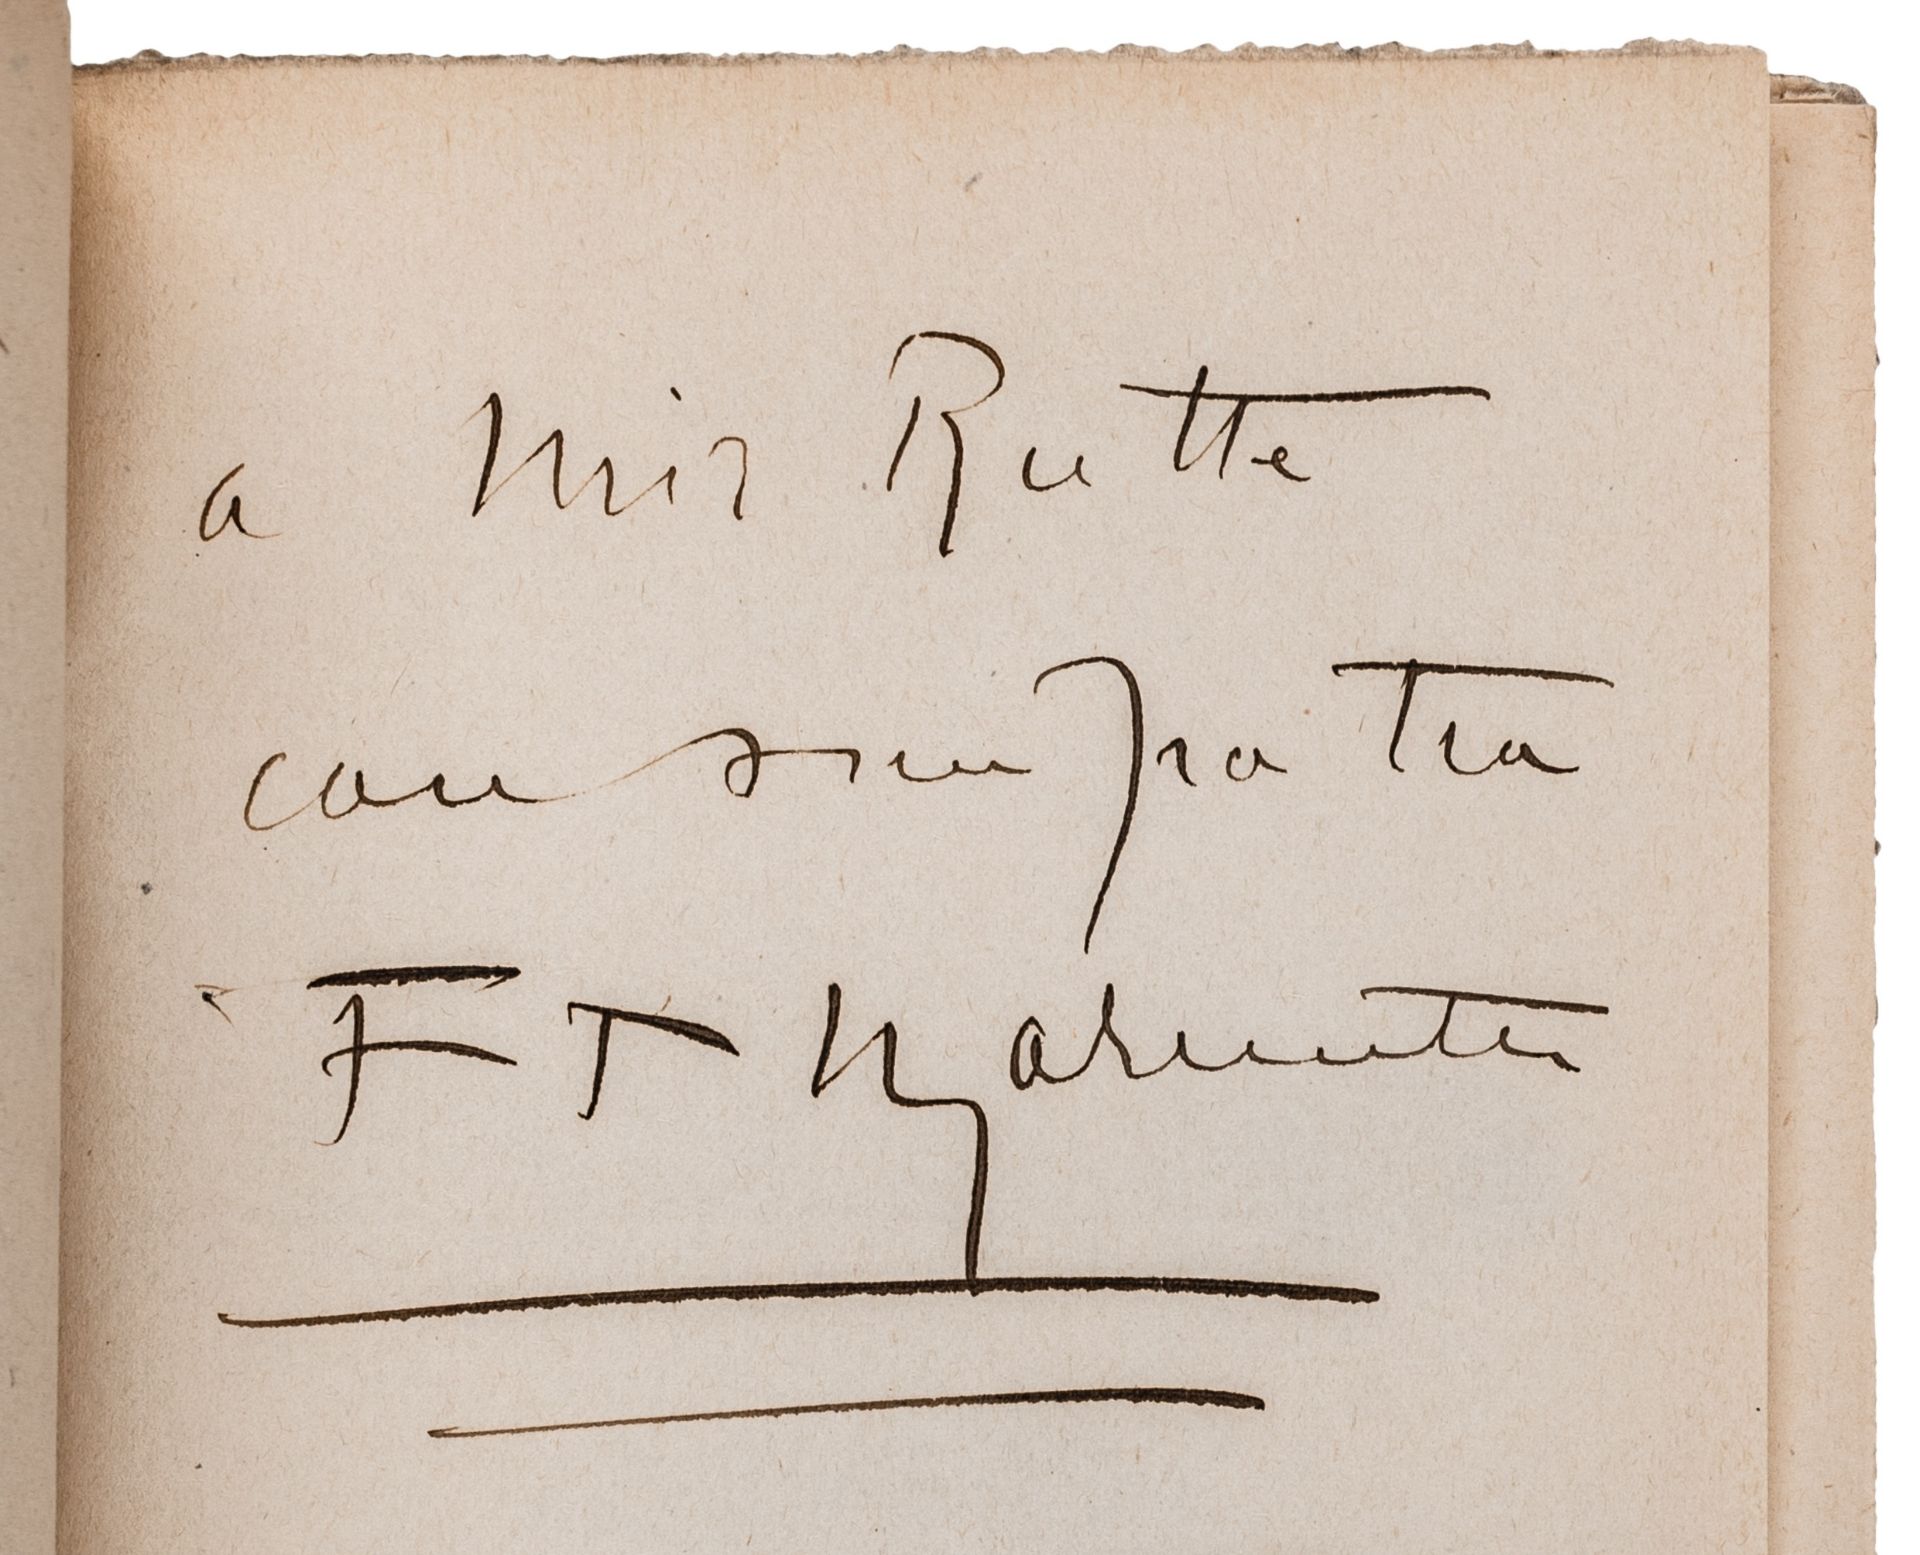 a Mir Rutte
con simpatia
F T Marinetti